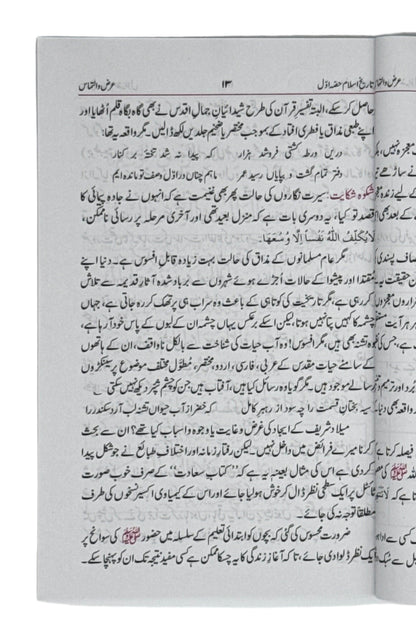 عرض والتماس ۱۳ تاریخ اسلام حصہ اوّل
حاصل کر سکے، البتہ تفسیر قرآن کی طرح شیدائیانِ جمالِ اقدس نے بھی گاہ بگاہ قلم اُٹھایا اور
اپنے طبعی مذاق یا فطری افتاد کے بموجب مختصر یا ضخیم جلدیں لکھ ڈالیں۔ مگر واقعہ یہ تھا:
دریں ورطہ کشتی فروشد ہزار کہ پیدا نہ شد تختۂ بر کنار
دفتر تمام گشت و بپایاں رسید عمر ماہم چناں در اوّل وصفِ تو ماندہ ایم
شکوہ شکایت: سیرت نگاروں کی حالت پھر بھی غنیمت ہے کہ انہوں نے جادہ پیمائی کا
قصد تو کیا، یہ دوسری بات ہے کہ منزل بعید تھی اور آخری مرحلہ پر رسائی ناممکن،
لَا يُكَلِّفُ اللّٰهُ نَفْسًا اِلَّا وُسْعَهَا۔
مگر عام مسلمانوں کے مذاق کی حالت بہت زیادہ قابلِ افسوس ہے۔ دنیا اپنے
مقتدا اور پیشوا کے حالات اُجڑے ہوئے شہروں سے برباد شدہ آثارِ قدیمہ سے تلاش
کر رہی ہے، مگر تاریخیت کی کوتاہی کے باعث وہ سراب ہی پر تھک کر رہ جاتی ہے، جہاں
چشمہ کا کہیں پتا نہیں ہوتا، لیکن اسکے برعکس یہاں چشمہ ان کے لبوں کے پاس خود آ رہا ہے،
وہ تشنہ بھی ہیں، مگر افسوس! وہ آب حیات کی شناخت سے بالکل ناواقف، ان کے ہاتھوں
کے سامنے حیاتِ مقدس کے عربی، فارسی، اردو، مختصر، مُطوّل مختلف موضوع پر سینکڑوں
رسالے موجود ہیں۔ مگر گویا وہ رسائل کیا ہیں، آفتاب ہیں جن کو چشم شپّر دیکھ نہیں سکتی۔
تہیدستانِ قسمت را چہ سود از رہبرِ کامل کہ خضر از آبِ حیواں تشنہ لب آرد سکندر را
میلاد شریف کے ایجاد کی غرض و غایت یا وجوہ و اسباب کیا تھے؟ ان سے بحث
کرنا میرے فرائض میں داخل نہیں۔ لیکن رفتارِ زمانہ اور اختلافِ طبائع نے جو شکل پیدا
کر دی ہے اس کی مثال بعینہٖ یہ ہے کہ "کتابِ سعادت" کے صرف خوب صورت
ٹائٹل پر ایک سطحی نظر ڈال کر خوش ہو لیا جائے اور اس کے کیمیاوی اکسیر نسخوں کی طرف
مطلقاً توجہ نہ کی جائے۔
ضرورت محسوس کی گئی کہ بچوں کو ابتدائی تعلیم کے سلسلہ میں حضور ﷺ کی سوانح پر
ایک نظر ڈلوا دی جائے، تاکہ آغازِ زندگی کا یہ چسکا ممکن ہے کسی مفید نتیجہ تک ان کو پہنچا سکے۔